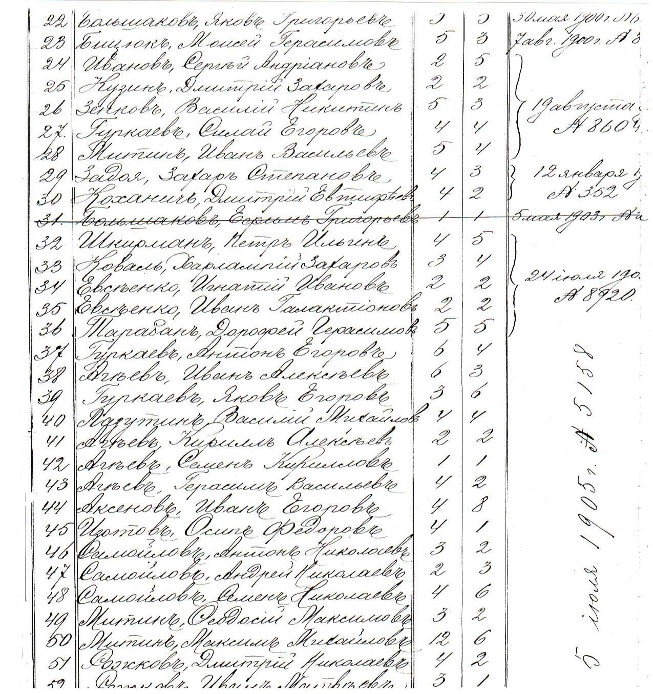 22 Большаковъ, Яковъ Григорьевъ 5 5 30 мая 1900 г. №
23 Бицюкъ, Моисей Герасимовъ 5 3 7 авг. 1900 г. № 8
24 Ивановъ, Сергѣй Андріановъ 2 5
25 Кузинъ, Дмитрій Захаровъ 2 2
26 Зенковъ, Василій Никитинъ 5 3 19 августа
27 Гуркаевъ, Силай Егоровъ 4 4 № 8604
28 Митинъ, Иванъ Васильевъ 5 4
29 Задоя, Захаръ Степановъ 4 3 12 января
30 Коханичъ, Дмитрій Евтихіевъ 4 2 № 352
31 Большаковъ, Григорьевъ 1 1 5 мая 1903 г. №
32 Шнирманъ, Петръ Ильинъ 4 5
33 Коваль, Харлампій Захаровъ 3 4
34 Евсѣенко, Игнатій Ивановъ 2 2 24 іюля 190
35 Евсѣенко, Иванъ Галактіоновъ 2 2 № 8920.
36 Тарабанъ, Дорофей Герасимовъ 5 5
37 Гуркаевъ, Антонъ Егоровъ 6 4
38 Агѣевъ, Иванъ Алексѣевъ 6 3
39 Гуркаевъ, Яковъ Егоровъ 3 6
40 Лагутинъ, Василій Михайловъ 4 4
41 Агѣевъ, Кириллъ Алексѣевъ 2 2
42 Агѣевъ, Семенъ Кирилловъ 1 1
43 Агѣевъ, Герасимъ Васильевъ 4 2
44 Аксеновъ, Иванъ Егоровъ 4 8
45 Изотовъ, Осипъ Ѳедоровъ 4 1
46 Самойловъ, Антонъ Николаевъ 3 2
47 Самойловъ, Андрей Николаевъ 2 3
48 Самойловъ, Семенъ Николаевъ 4 6
49 Митинъ, Ѳеодосій Максимовъ 3 2
50 Митинъ, Максимъ Михайловъ 12 6
51 Рожковъ, Дмитрій Николаевъ 4 2
52 Рожковъ, Иванъ Матвѣевъ 3 1
5 іюля 1905 г. № 5158